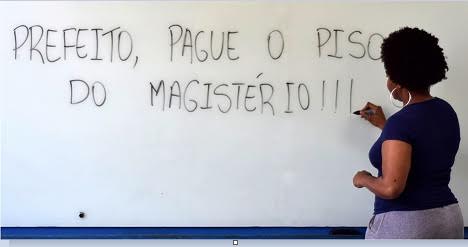 PREFEITO, PAGUE O PISO
DO MAGISTÉRIO!!!